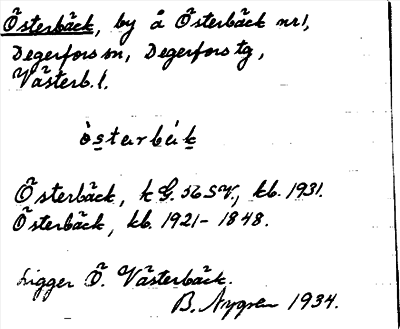 Österbäck, by å Österbäck nr 1,
Degerfors sn, Degerfors tg,
Västerb. l.
òsterbék
Österbäck, k G. 56 SV., kb. 1931.
Österbäck, kb. 1921-1848.
Ligger Ö. Västerbäck.
B. Nygren 1934.